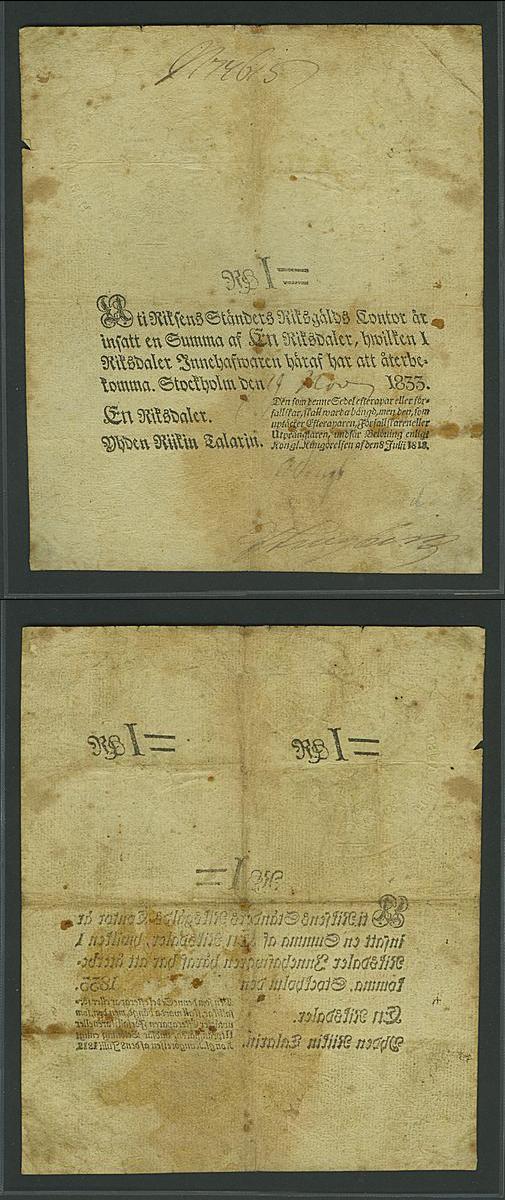 RG I =
At i Riksens Ständers Riksgälds Contor är
insatt en Summa af En Riksdaler, hwilken 1
Riksdaler Innehafwaren häraf har att återbe-
komma. Stockholm den 19 1833.
En Riksdaler.
Yhden Riikin Talarin.
Den som denne Sedel efterapar eller för-
falskar, skall warda hängd, men den, som
uptäcker Efteraparen, Förfalskaren eller
Utprånglaren, undfår Belöning enligt
Kongl. Kungörelsen af den 8 Julii 1818.
RG I =
RG I =
RG I =
At i Riksens Ständers Riksgälds Contor är
insatt en Summa af En Riksdaler, hwilken 1
Riksdaler Innehafwaren häraf har att återbe-
komma. Stockholm den 1833.
En Riksdaler.
Yhden Riikin Talarin.
Den som denne Sedel efterapar eller för-
falskar, skall warda hängd, men den, som
uptäcker Efteraparen, Förfalskaren eller
Utprånglaren, undfår Belöning enligt
Kongl. Kungörelsen af den 8 Julii 1818.